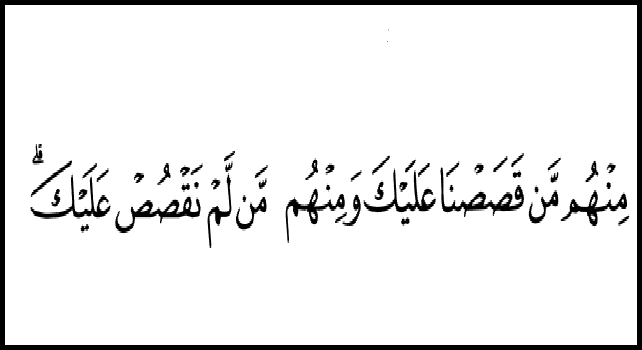 مِنْهُم مَّن قَصَصْنَا عَلَيْكَ وَمِنْهُم مَّن لَّمْ نَقْصُصْ عَلَيْكَ ۗ